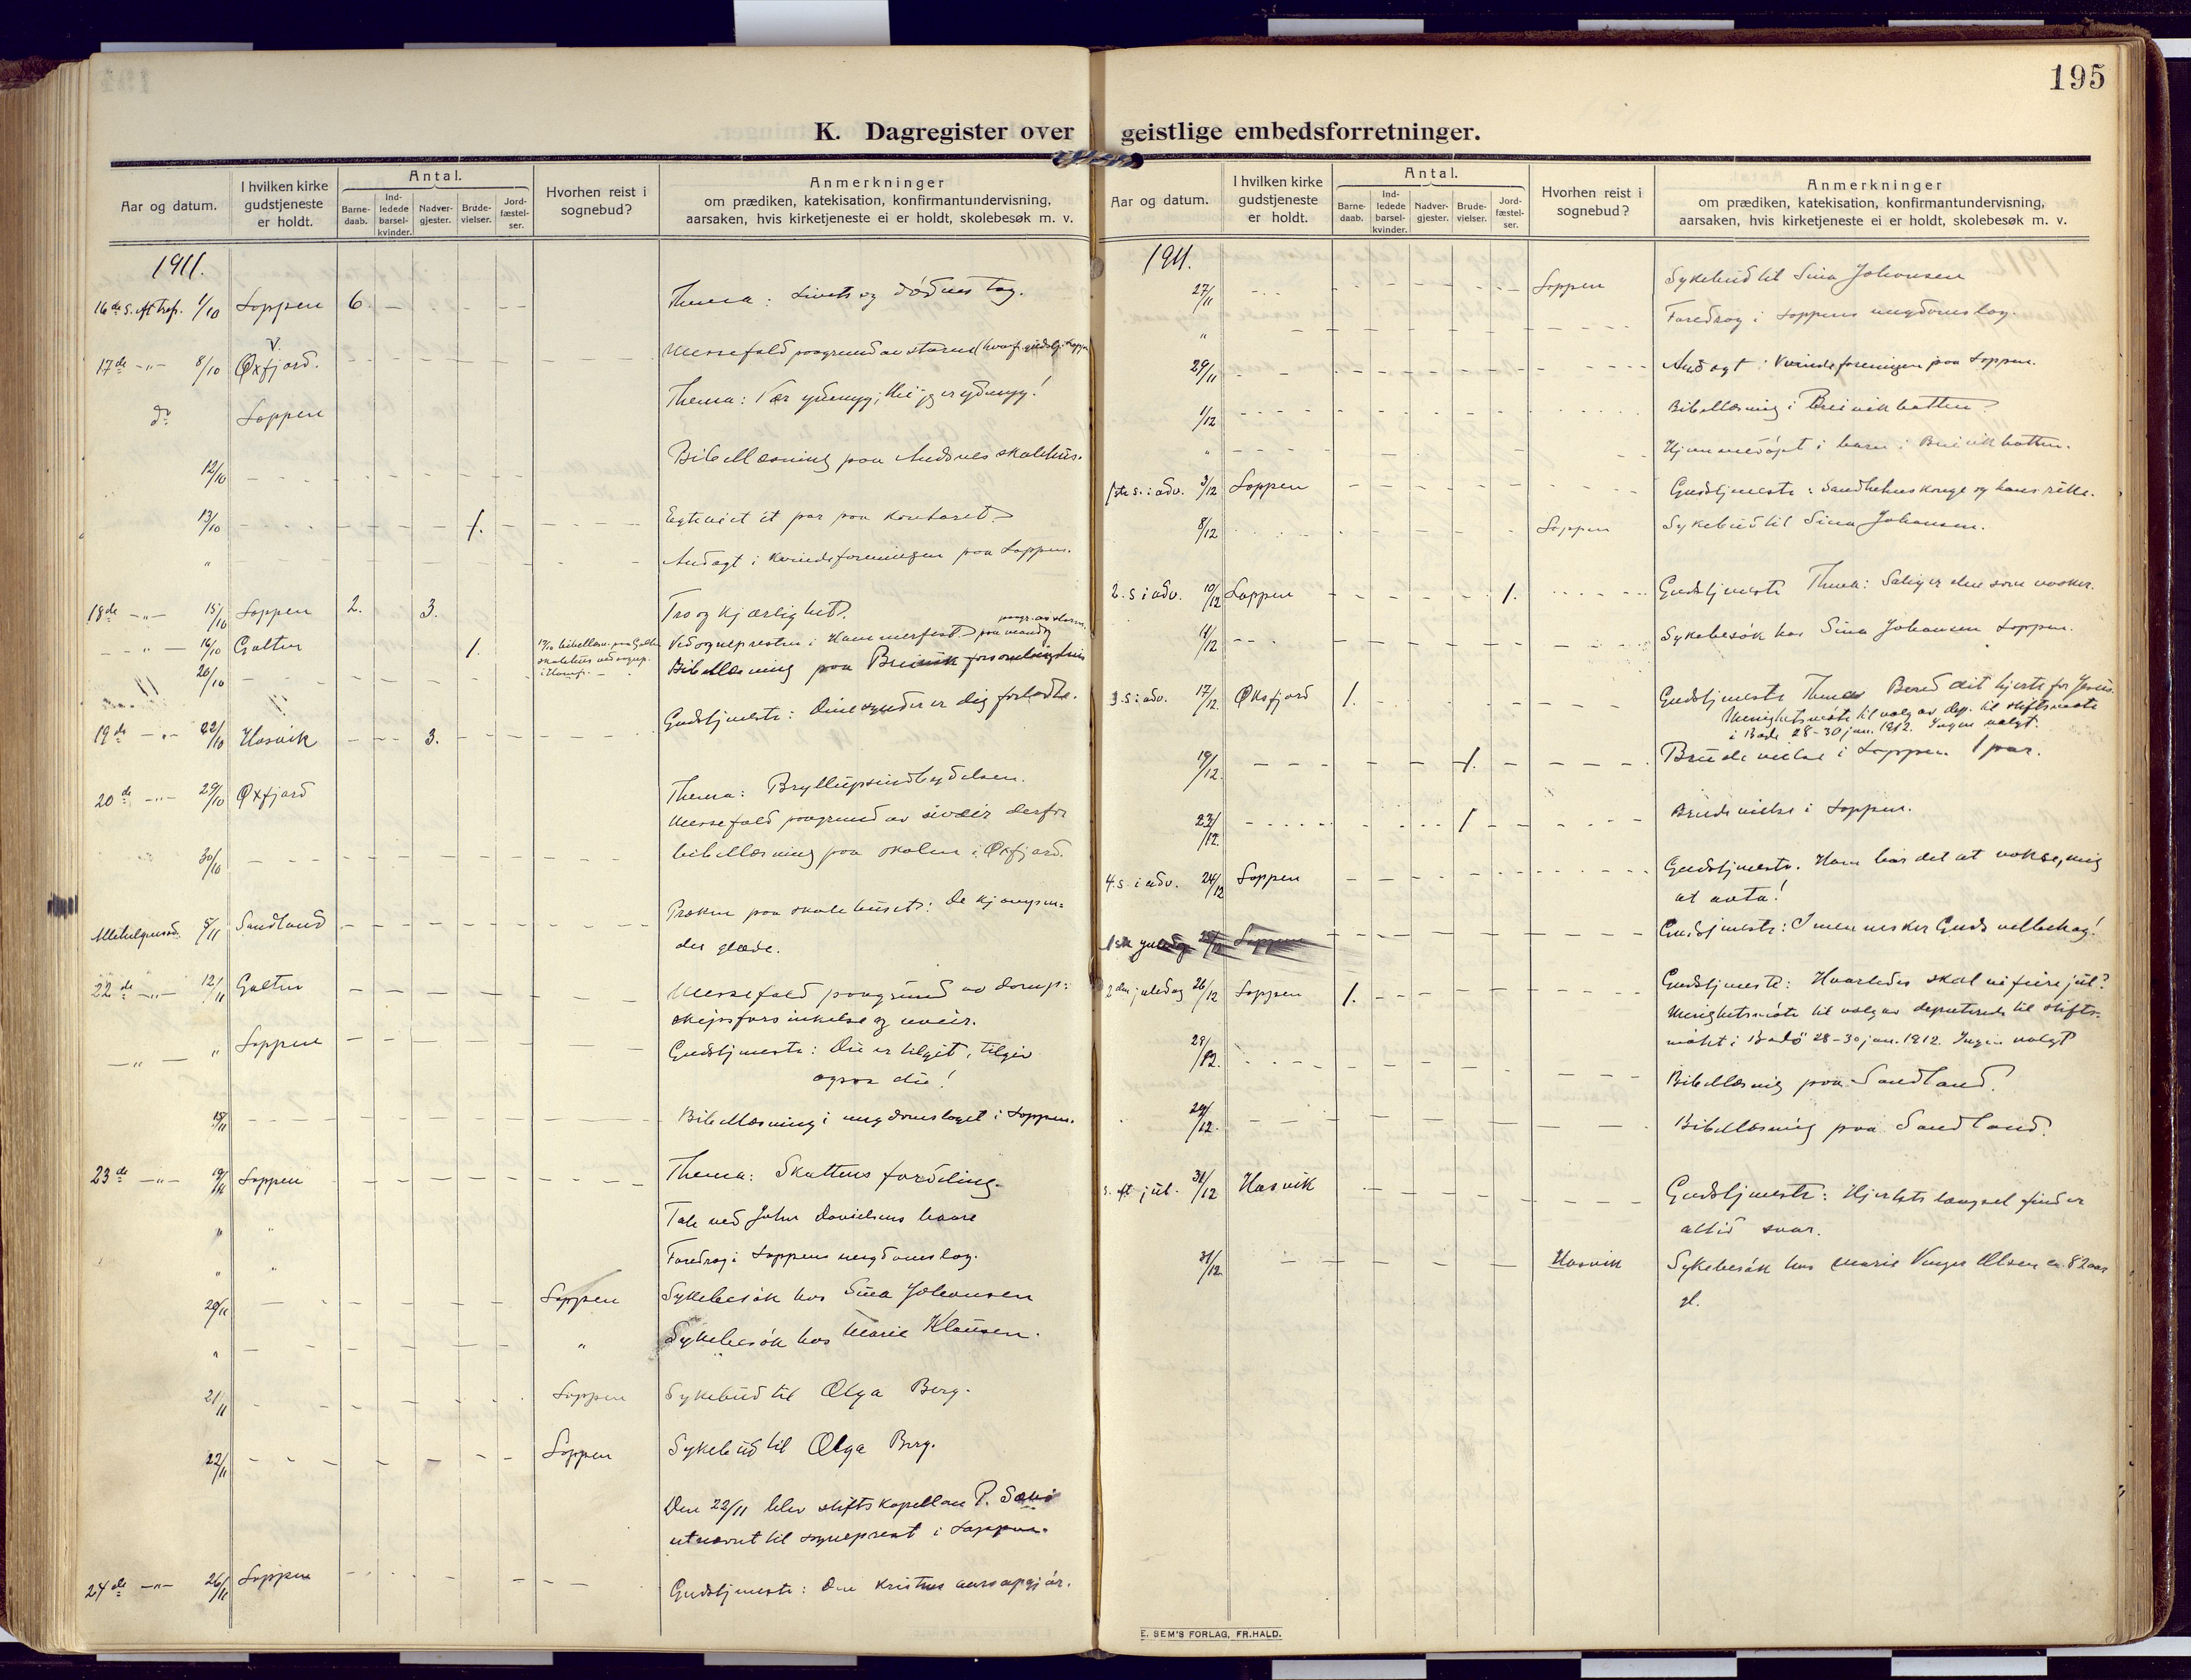 195
K. Dagregister over geistlige embedsforretninger.
Aar og datum.
I hvilken kirke gudstjeneste er holdt.
Antal.
Barne-daab.
Ind-ledede barsel-kvinder.
Nadver-gjester.
Brude-vielser.
Jord-fæstel-ser.
Hvorhen reist i sognebud?
Anmerkninger
om prædiken, katekisation, konfirmantundervisning,
aarsaken, hvis kirketjeneste ei er holdt, skolebesøk m. v.
1911.
16de S. eft. tref. 1/10 Loppen 6. Thema: Livets og dødens tog.
17de -"- 8/10 Øxfjord. Messefald paagrund av storm
do Loppen Thema: Vær ydmyg; thi jeg er ydmyg!
12/10 Bibellæsning paa Andsnes skolehus.
13/10 1. Egteviet et par paa kontoret
" Andagt i Kvindeforeningen paa Loppen.
18de -"- 15/10 Loppen 2. 3. Tro og Kjærlighet.
-"- 16/10 Galten 1. Ved sognepresten i Hammerfest
20/10 Bibellæsning paa Breivik forsamlingshus
19de -"- 22/10 Hasvik 3. Gudstjeneste: Dine synder er dig forladte.
20de -"- 29/10 Øxfjord Thema: Bryllupsindbydelsen.
Messefald paagrund av uveir derfor
30/10 bibellæsning paa skolen i Øxfjord.
Allehelgensd. 5/11 Sandland Præken paa skolehuset: De
des glæde.
22de -"- 12/11 Galten Messefald paagrund av damp=
skipsforsinkelse og uveir.
-"- " Loppen Gudstjeneste: Du er tilgit, tilgiv
ogsaa du!
15/11 Bibellæsning i ungdomslaget i Loppen.
23de -"- 19/11 Loppen Thema: Skattens fordeling.
" " Tale ved John Davidsens baare
" " Foredrag i Loppens ungdomslag.
20/11 Loppen Sykebesøk hos Sina Johansen
" " Sykebesøk hos Marie Klausen.
21/11 Loppen Sykebud til Olga Berg.
22/11 Loppen Sykebud til Olga Berg.
Den 22/11 blev stiftskapellan P.
utnævnt til sogneprest i Loppen.
24de -"- 26/11 Loppen Gudstjeneste: Den kristnes aarsopgjør.
Aar og datum.
I hvilken kirke gudstjeneste er holdt.
Antal.
Barne-daab.
Ind-ledede barsel-kvinder.
Nadver-gjester.
Brude-vielser.
Jord-fæstel-ser.
Hvorhen reist i sognebud?
Anmerkninger
om prædiken, katekisation, konfirmantundervisning,
aarsaken, hvis kirketjeneste ei er holdt, skolebesøk m. v.
1911.
27/11 Loppen Sykebud til Sina Johansen
" Foredrag i Loppens ungdomslag.
29/11 Andagt i Kvindeforeningen paa Loppen.
1/12 Bibellæsning i Breivikbotten.
" Hjemmedøpt i barn i Breivikbotten.
1ste s. i adv. 3/12 Loppen Gudstjeneste: Sandhetens konge og hans rike.
8/12 Loppen Sykebud til Sina Johansen.
2. s i adv. 10/12 Loppen 1. Gudstjeneste Thema: Salig er den som vaaker.
11/12 Sykebesøk hos Sina Johansen Loppen.
3. s i adv. 17/12 Øksfjord 1. Gudstjeneste Thema Bered dit hjerte for Jesus.
Menighetsmøte til valg av dep. til stiftsmøte
i Bodø 28-30 jan. 1912. Ingen valgt.
19/12 1. Brudevielse i Loppen 1 par.
23/12 1 Brudevielse i Loppen.
4. s. i adv. 24/12 Loppen Gudstjeneste. Ham bør det at vokse, mig
at avta!
1ste juledag 25/12 Loppen Gudstjeneste: I mennesker Guds velbehag!
2den juledag 26/12 Loppen 1. Gudstjeneste: Hvorledes skal vi feire jul?
Menighetsmøte til valg av deputerede til stifts=
møtet i Bodø 28-30 jan. 1912. Ingen valgt
28/12. Bibellæsning paa Sandland.
29/12. Bibellæsning paa Sandland.
s. eft jul. 31/12 Hasvik Gudstjeneste: Hjertets længsel finder
altid svar.
31/12. Hasvik Sykebesøk hos Marie Olsen ca. 82 aar
gl.
E. SEM'S FORLAG, FR.HALD.